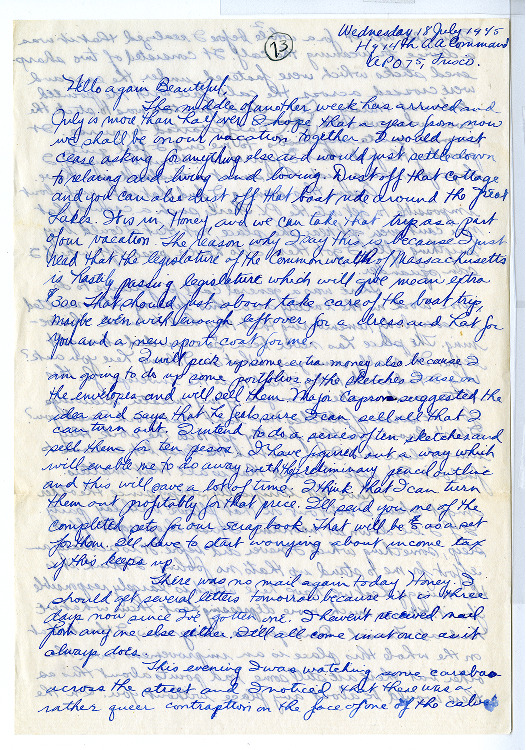 Wednesday 18 July 1945
Hq 14th A.A. Command
APO 75, Frisco.
73
Hello again Beautiful,
The middle of another week has arrived and
July is more than half over. I hope that a year from now
we shall be on our vacation together. I would just
cease asking for anything else and would just settle down
to relaxing and living and loving. Dust off that cottage
and you can also dust off that boat ride around the Great
Lakes. It is in, Honey, and we can take that trip as a part
of our vacation. The reason why I say this is because I just
read that the legislature of the Commonwealth of Massachusetts
is hastily passing legislature which will give me an extra
$300. That should just about take care of the boat trip,
maybe even with enough left over for a dress and hat for
you and a new sport coat for me.
I will pick up some extra money also because I
am going to do up some portfolios of the sketches I use on
the envelopes and will sell them. Major Capron suggested the
idea and says that he feels sure I can sell all that I
can turn out. I intend to do a series of ten sketches and
sell them for ten pesos. I have figured out a way which
will enable me to do away with the preliminary pencil outline
and this will save a lot of time. I think that I can turn
them out profitably for that price. I'll send you one of the
completed sets for our scrapbook. That will be $5.00 a set
for them. I'll have to start worrying about income tax
if this keeps up.
There was no mail again today Honey. I
should get several letters tomorrow because it is three
days now since I've gotten one. I haven't received mail
from any one else either. It'll all come in at once as it
always does.
This evening I was watching some carabao
across the street and I noticed that there was a
rather queer contraption on the face of one of the calves